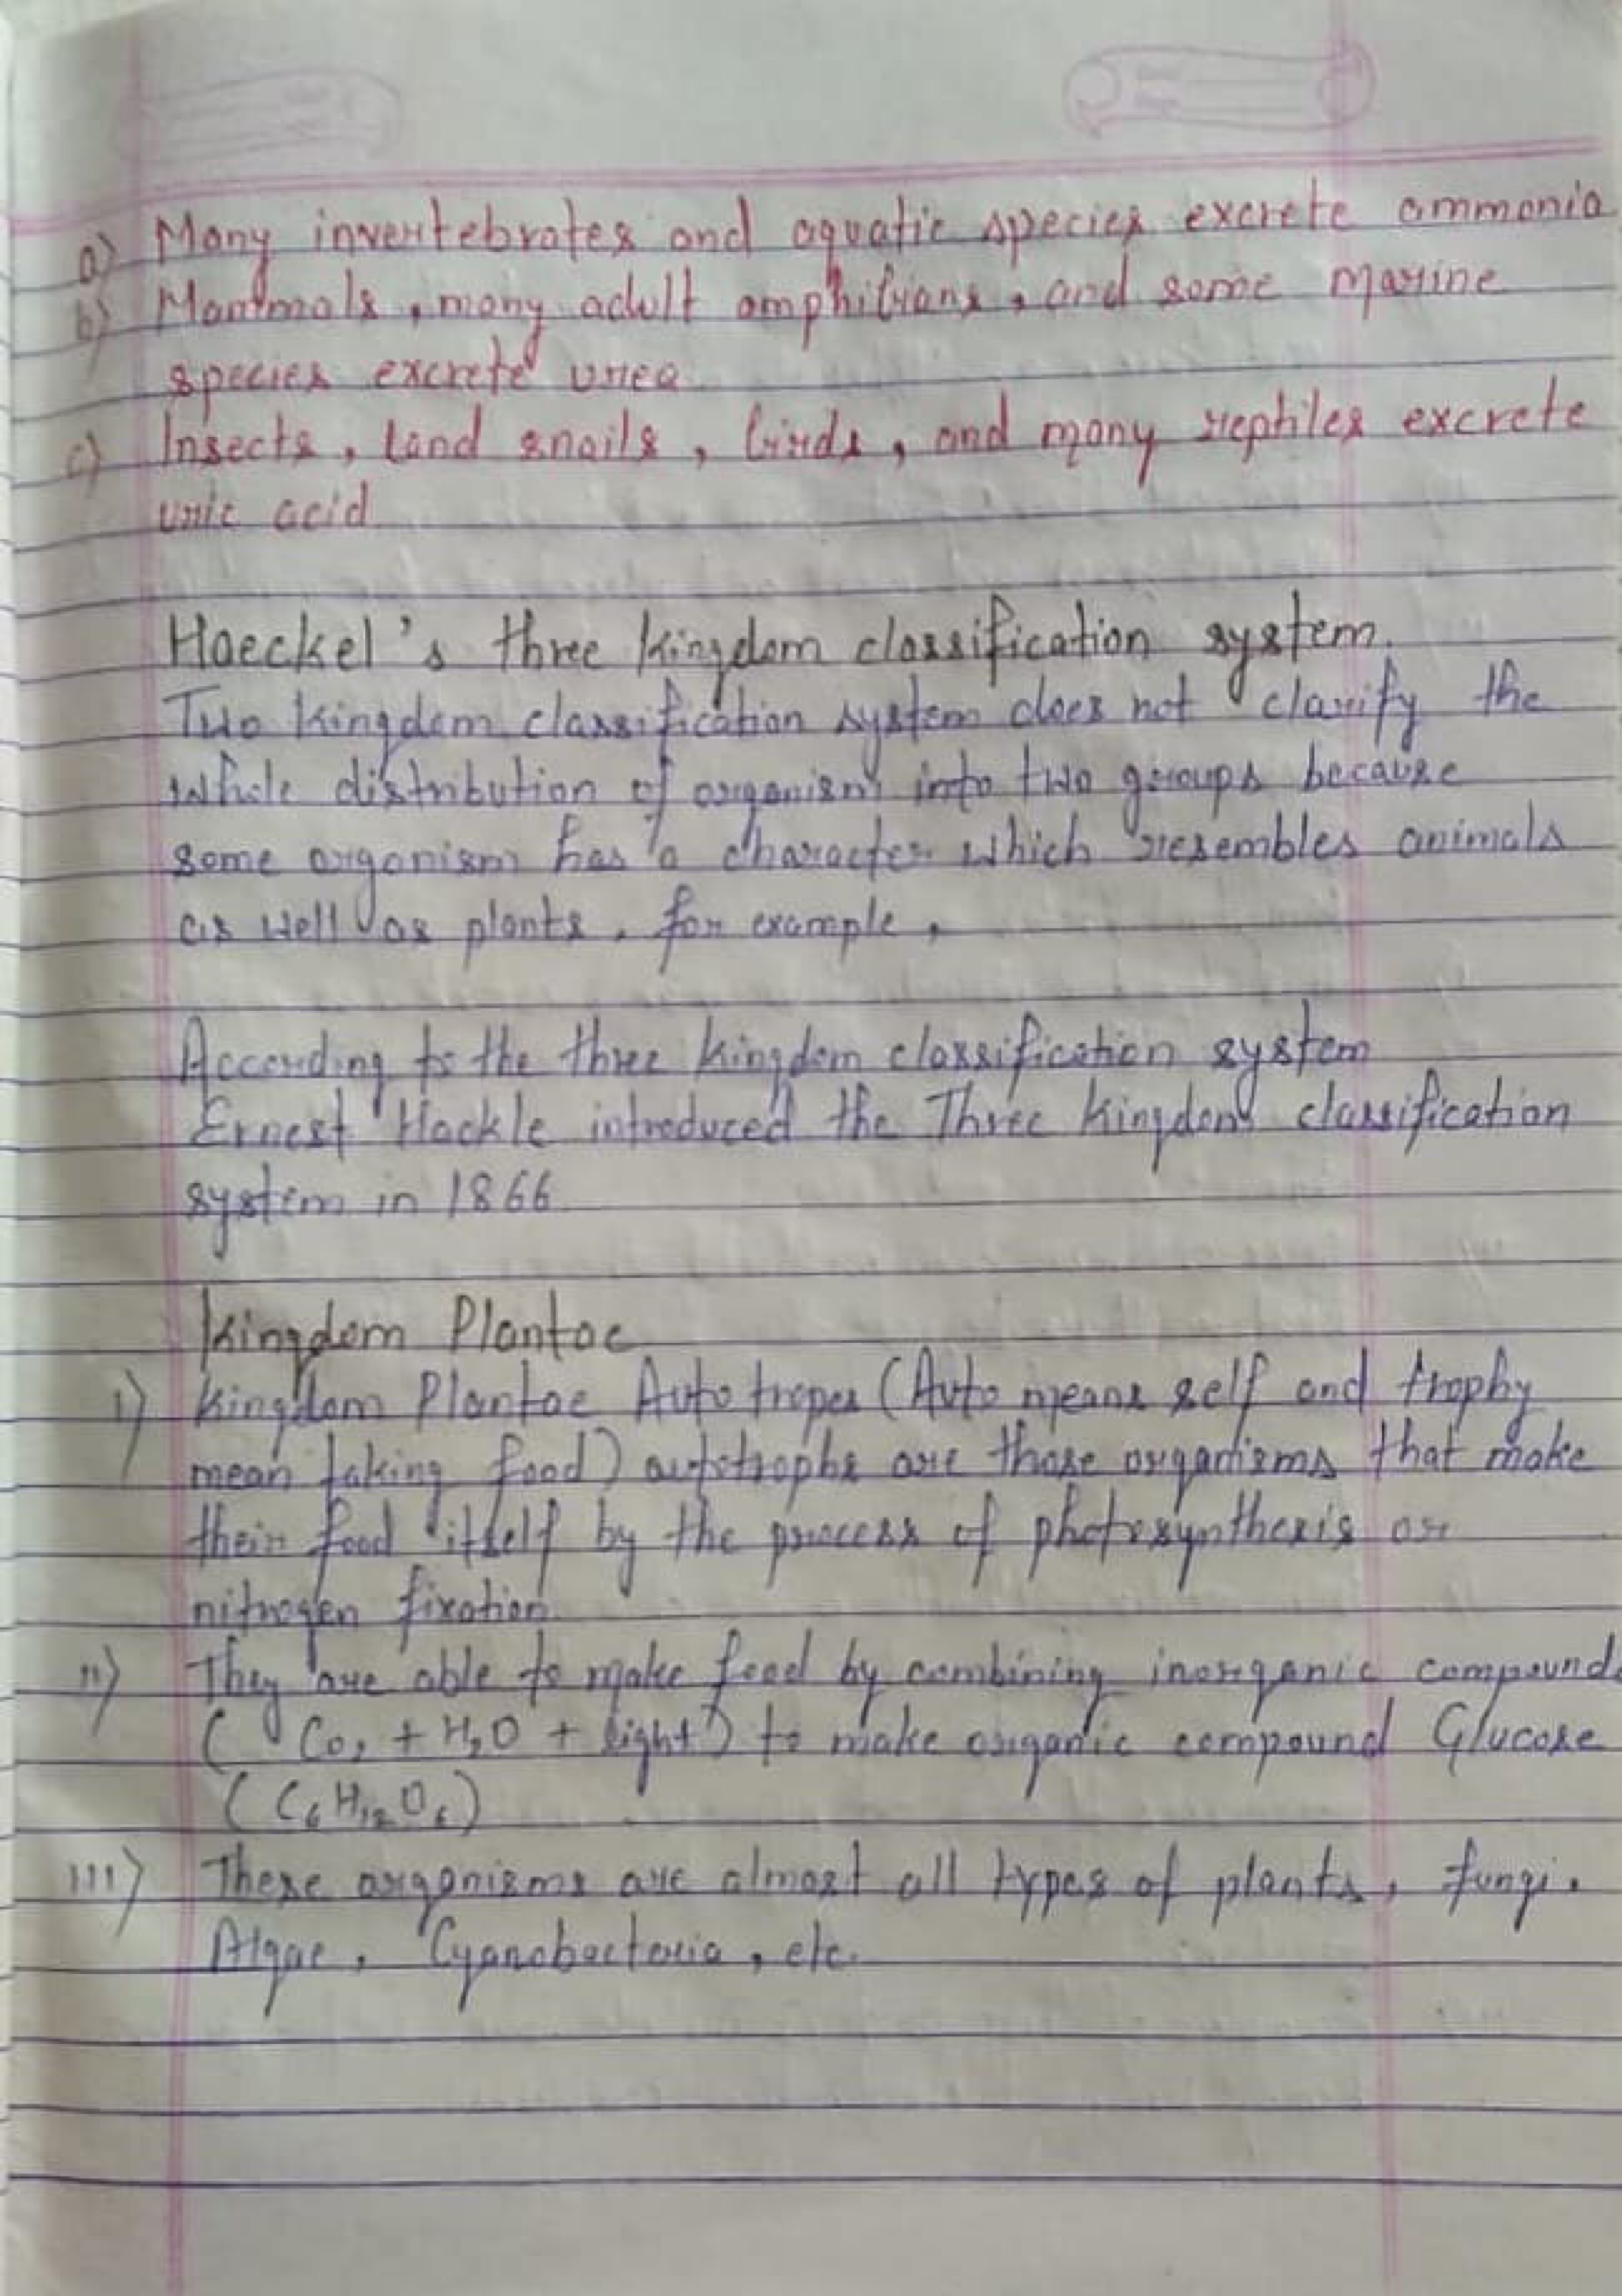 a) Many invertebrates and aquatic species excrete ammonia
b) Mammals, many adult amphibians, and some marine
species excrete urea
c) Insects, land snails, birds, and many reptiles excrete
uric acid
Haeckel's three kingdom classification system.
Two kingdom classification system does not clarify the
whole distribution of organism into two groups because
some organism has a character which resembles animals
as well as plants, for example,
According to the three kingdom classification system
Ernest Hackle introduced the Three kingdoms classification
system in 1866
Kingdom Plantae
i) Kingdom Plantae Autotropes (Auto means self and trophy
mean taking food) autotrophs are those organisms that make
their food itself by the process of photosynthesis or
nitrogen fixation
ii) They are able to make food by combining inorganic compound
( Co₂ + H₂O + light) to make organic compound Glucose
(C₆H₁₂O₆)
iii) These organisms are almost all types of plants, fungi,
Algae, Cyanobacteria, etc.